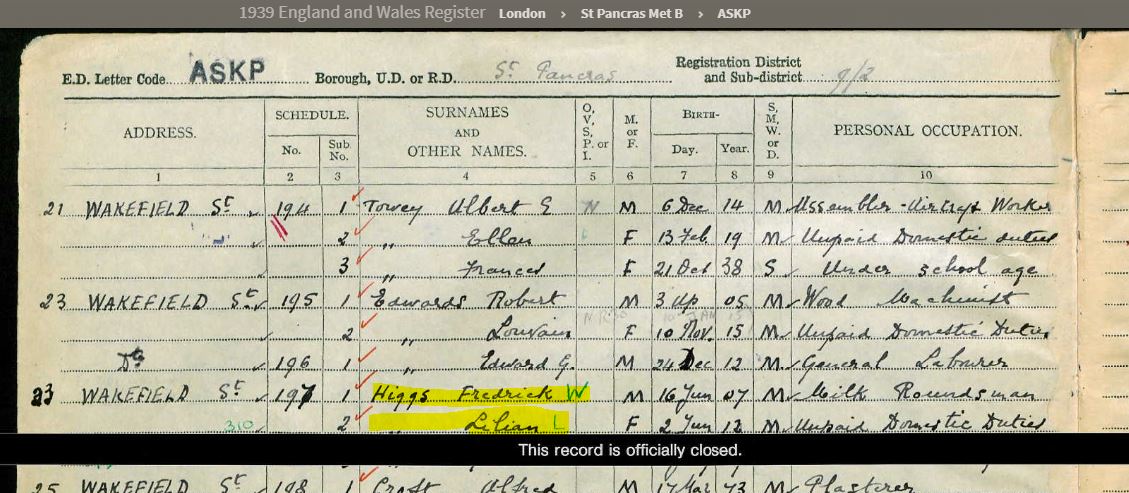 1939 England and Wales Register London › St Pancras Met B › ASKP
E.D. Letter Code ASKP Borough, U.D. or R.D. St Pancras Registration District and Sub-district
ADDRESS. SCHEDULE. SURNAMES AND OTHER NAMES. O, V, S, P. or I. M. or F. BIRTH- S, M, W. or D. PERSONAL OCCUPATION.
No. Sub No. Day. Year.
1 2 3 4 5 6 7 8 9 10
21 WAKEFIELD St 194 1 Towey Albert E M 6 Dec 14 M Assembler - Aircraft Worker
2 „ Ellen F 13 Feb 19 M Unpaid Domestic duties
3 „ Frances F 21 Oct 38 S Under school age
23 WAKEFIELD St 195 1 Edwards Robert M 3 Ap 05 M Wood Machinist
2 „ Louvain F 10 Nov. 15 M Unpaid Domestic Duties
Do 196 1 „ Edward G. M 24 Dec 12 M General Labourer
23 WAKEFIELD St 197 1 Higgs Fredrick W M 16 Jun 07 M Milk Roundsman
310 2 „ Lilian L F 2 Jun 12 M Unpaid Domestic Duties
This record is officially closed.
25 WAKEFIELD St 198 1 Croft Alfred M 17 Mar 73 M Plasterer